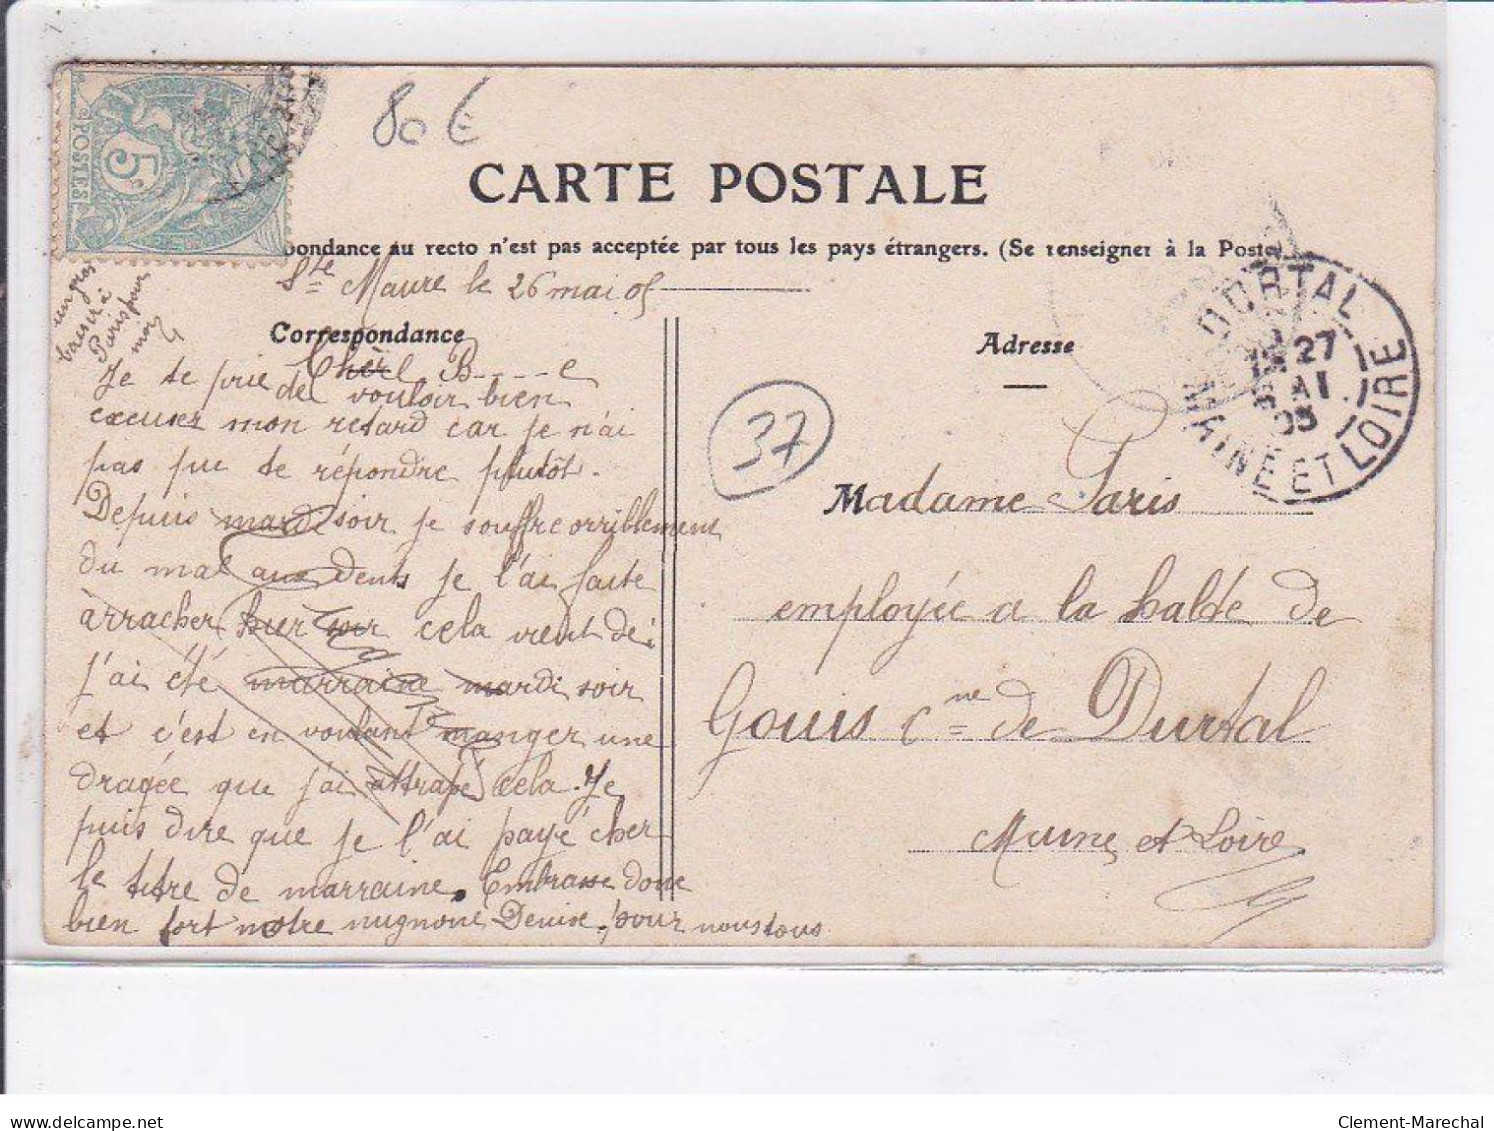 80 €
POSTES
5
CARTE POSTALE
pondance au recto n'est pas acceptée par tous les pays étrangers. (Se renseigner à la Poste
Ste Maure le 26 mai 05
Correspondance
Adresse
un gros
baiser à
Paris pour
moi
B-----e
Je te prie de vouloir bien
excuser mon retard car je n'ai
pas pu te répondre plutôt.
Depuis mardi soir je souffre orriblement
du mal aux dents je l'ai faite
arracher hier soir cela vient de:
j'ai été marraine mardi soir
et c'est en voulant manger une
dragée que j'ai attrapé cela. Je
puis dire que je l'ai payé cher
le titre de marraine. Embrasse donc
bien fort notre mugnone Denise, pour nous tous
37
DURTAL
27
MAI
05
MAINE ET LOIRE
Madame Paris
employée a la halte de
Gouis Cne de Durtal
Maine et Loire
delcampe.net
Clement-Marechal